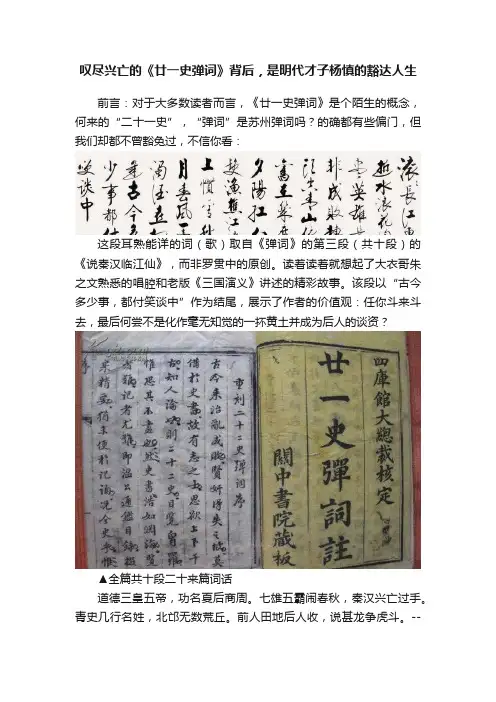 叹尽兴亡的《廿一史弹词》背后，是明代才子杨慎的豁达人生
前言：对于大多数读者而言，《廿一史弹词》是个陌生的概念，
何来的“二十一史”，“弹词”是苏州弹词吗？的确都有些偏门，但
我们却都不曾豁免过，不信你看：
滚長江東
逝水浪花
英雄
非成敗
頭空青山依
舊在
夕陽紅
漁樵江
上慣看秋
月春風一
濁酒
逢古今多
少事都付
笑談中
这段耳熟能详的词（歌）取自《弹词》的第三段（共十段）的
《说秦汉临江仙》，而非罗贯中的原创。读着读着就想起了大衣哥朱
之文熟悉的唱腔和老版《三国演义》讲述的精彩故事。该段以“古今
多少事，都付笑谈中”作为结尾，展示了作者的价值观：任你斗来斗
去，最后何尝不是化作毫无知觉的一抔黄土并成为后人的谈资？
四庫館大總裁核定
廿一史彈詞註
關中書院藏板
重刻二十二史彈詞序
古今來治亂成敗賢奸得失之跡具
備於史書故有志之士思欲上下千
▲全篇共十段二十来篇词话
道德三皇五帝，功名夏后商周。七雄五霸闹春秋，秦汉兴亡过手。
青史几行名姓，北邙无数荒丘。前人田地后人收，说甚龙争虎斗。--